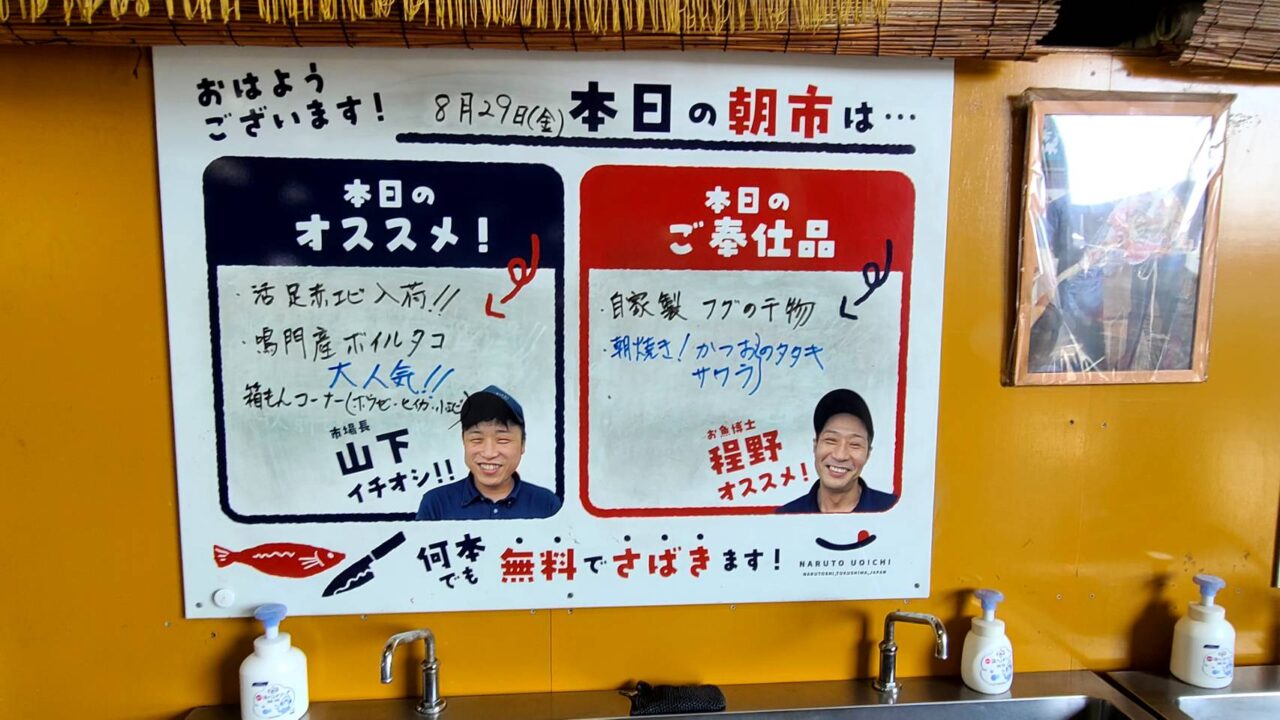 おはよう
ございます!
8月29日(金)本日の朝市は…
本日の
オススメ!
・活足赤エビ入荷!!
・鳴門産ボイルタコ
大人気!!
箱もんコーナー(ボウゼ・ヒイカ・小エビ)
市場長
山下
イチオシ!!
本日の
ご奉仕品
・自家製 フグの干物
・朝焼き! かつおのタタキ
サワラ
お魚博士
程野
オススメ!
何本
でも
無料でさばきます!
NARUTO UOICHI
NARUTOSHI,TOKUSHIMA,JAPAN